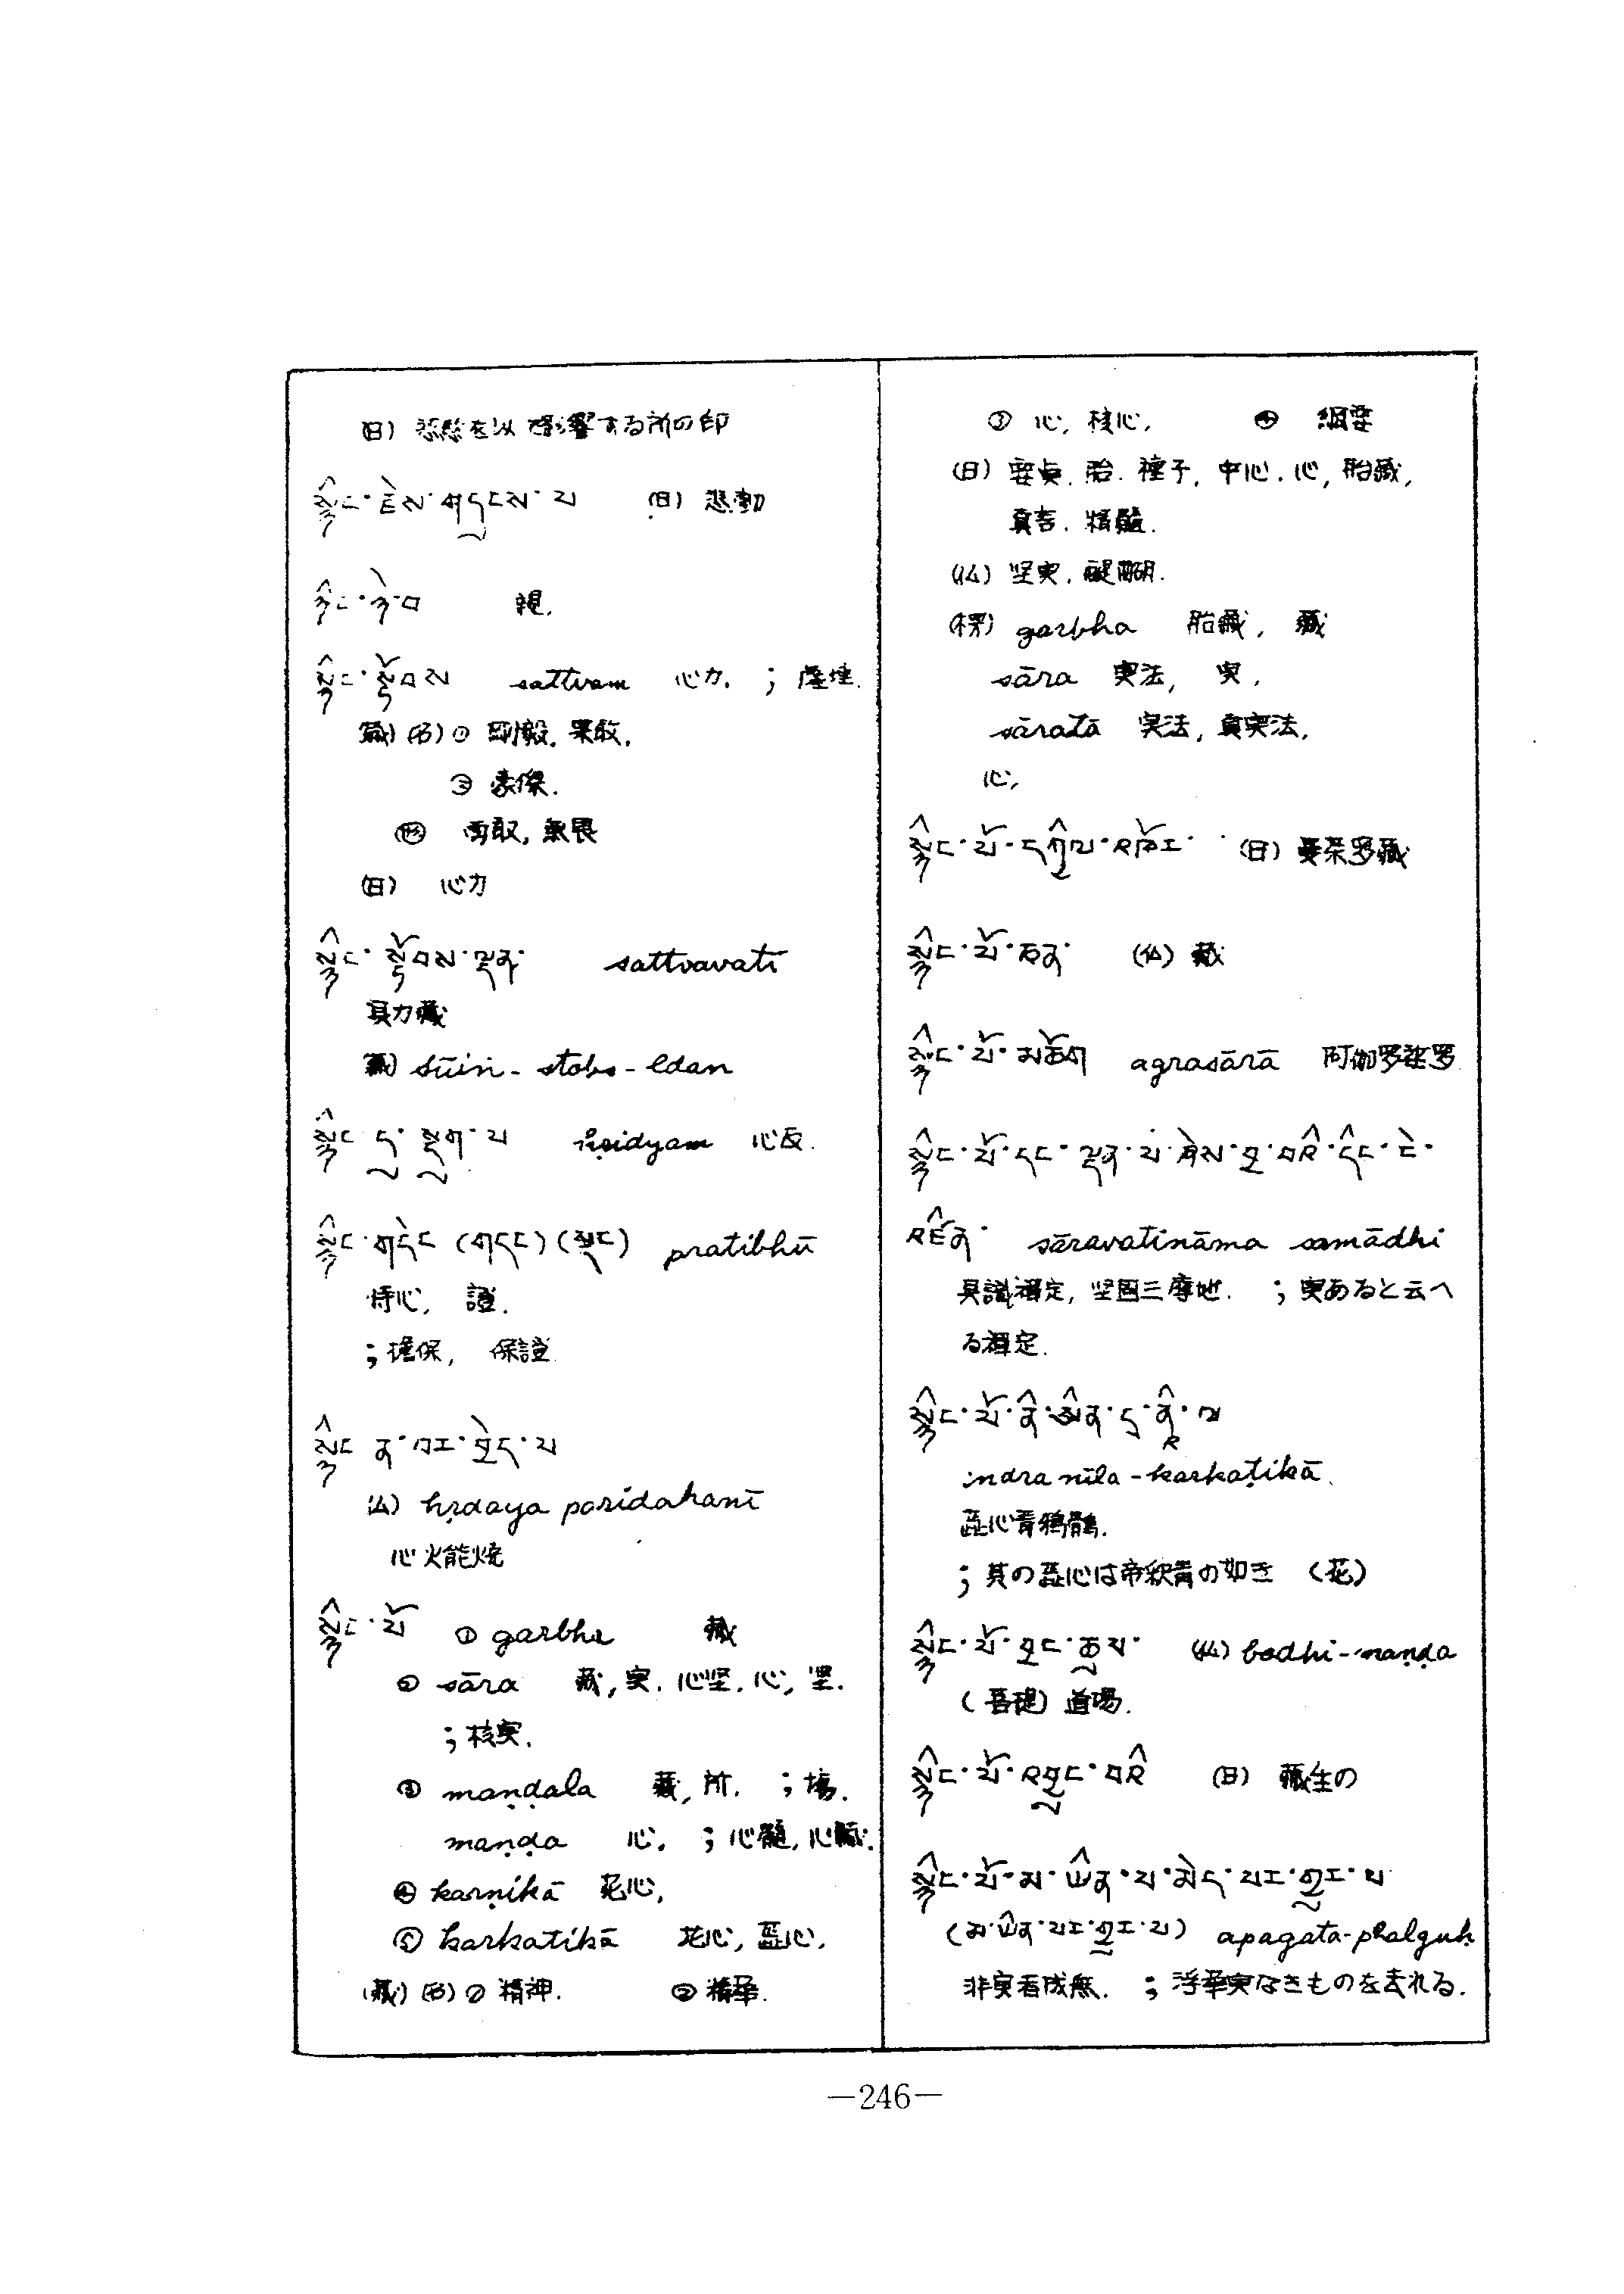 (日) を以 影響する所の印
སྙིང་རྗེས་གདུངས་པ (日) 悲動
སྙིང་ཉེ་བ 親.
སྙིང་སྟོབས sattvam 心力. ;
蔵) (名) ① 剛毅, 果敢,
② 豪傑.
勇敢, 無畏
(日) 心力
སྙིང་སྟོབས་ལྡན་ sattvavatī
具力蔵
蔵) sñin - stobs - ldan
སྙིང་དུ་སྡུག་པ hṛidyam 心友.
སྙིང་གདེང (གདང) (སྡང) pratibhū
侍心, 證.
; 擔保, 保證
སྙིང་ན་བར་བྱེད་པ
(仏) hṛdaya paridahanī
心火能焼
སྙིང་པོ ① garbha 蔵
② sāra 蔵, 実. 心堅. 心, 堅.
; 核実.
③ maṇḍala 蔵, 所. ; 場.
maṇḍa 心. ; 心髄, 心臓.
④ karṇikā 花心,
⑤ karkatikā 花心, 蕋心.
(蔵) (名) ① 精神. ② 精華.
③ 心, 核心, ④ 綱要
(日) 要点. 胎. 種子, 中心. 心, 胎蔵,
真言. 精髄.
(仏) 堅実. 醍醐.
(梵) garbha 胎蔵, 蔵
sāra 実法, 実.
sāratā 実法, 真実法,
心,
སྙིང་པོ་དཀྱིལ་འཁོར་ (日) 曼荼羅蔵
སྙིང་པོ་ཅན་ (仏) 蔵
སྙིང་པོ་མཆོག agrasārā 阿伽罗娑罗
སྙིང་པོ་དང་ལྡན་པ་ཞེས་བྱ་བའི་ཏིང་ངེ་
འཛིན་ sāravatināma samādhi
具識禅定, 堅固三摩地. ; 実あると云へ
る禅定.
སྙིང་པོ་ནི་ཨིན་དྲ་ནི་ལ
indra nīla - karkaṭikā
蕋心青鵁鶄.
; 其の蕋心は帝釈青の如き (花)
སྙིང་པོ་བྱང་ཆུབ་ (仏) bodhi-maṇḍa
(菩提) 道場.
སྙིང་པོ་འབྱུང་བའི (日) 蔵生の
སྙིང་པོ་མ་ཡིན་པ་མེད་པར་གྱུར་པ
(མ་ཡིན་པར་གྱུར་པ) apagata-phalguḥ
非実看成無. ; 浮華実なきものを去れる.
—246—